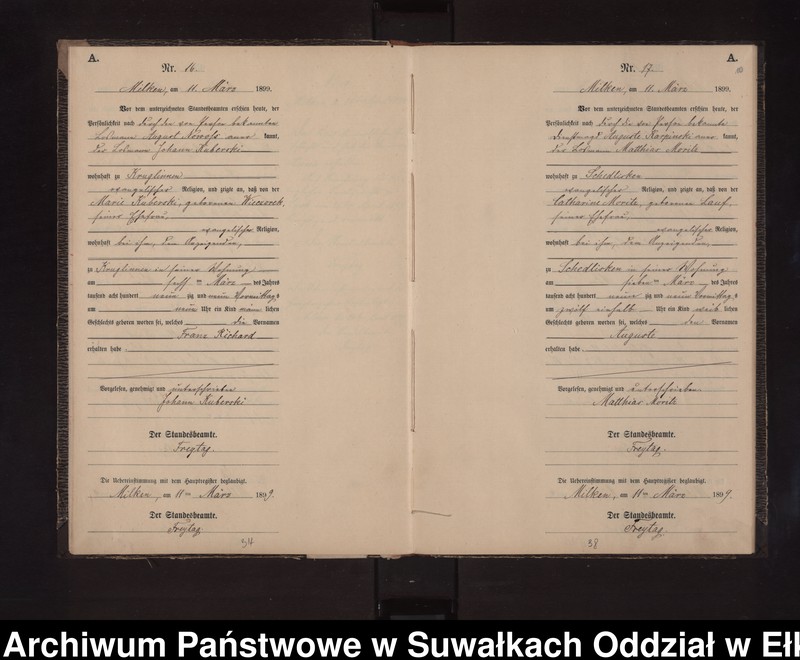 A.
Nr. 16.
Milken, am 11. März 1899.
Vor dem unterzeichneten Standesbeamten erschien heute, der
Persönlichkeit nach durch die von Person bekannten
Losmann August kannt,
der Losmann Johann Kuberski
wohnhaft zu
evangelischer Religion, und zeigte an, daß von der
Marie Kuberski, geborenen Wieczorek,
seiner Ehefrau,
evangelischer Religion,
wohnhaft bei ihm, dem Anzeigenden,
zu in seiner Wohnung
am ten März des Jahres
tausend acht hundert neunzig und neun Vormittags
um neun Uhr ein Kind männlichen
Geschlechts geboren worden sei, welches die Vornamen
Franz Richard
erhalten habe.
Vorgelesen, genehmigt und unterschrieben
Johann Kuberski
Der Standesbeamte.
Freytag.
Die Uebereinstimmung mit dem Hauptregister beglaubigt.
Milken, am 11ten März 1899.
Der Standesbeamte.
Freytag
A.
Nr. 17.
Milken, am 11. März 1899.
Vor dem unterzeichneten Standesbeamten erschien heute, der
Persönlichkeit nach durch die von Person bekannte
Dienstmagd Auguste Karpinski kannt,
der Losmann Matthias Moritz
wohnhaft zu Schedlisken
evangelischer Religion, und zeigte an, daß von der
Catharine Moritz, geborenen
seiner Ehefrau,
evangelischer Religion,
wohnhaft bei ihm, dem Anzeigenden,
zu Schedlisken in seiner Wohnung
am ten März des Jahres
tausend acht hundert neunzig und neun Vormittags
um zwölf einhalb Uhr ein Kind weiblichen
Geschlechts geboren worden sei, welches den Vornamen
Auguste
erhalten habe.
Vorgelesen, genehmigt und unterschrieben
Matthias Moritz
Der Standesbeamte.
Freytag.
Die Uebereinstimmung mit dem Hauptregister beglaubigt.
Milken, am 11ten März 1899.
Der Standesbeamte.
Freytag
Archiwum Państwowe w Suwałkach Oddział w Ełk